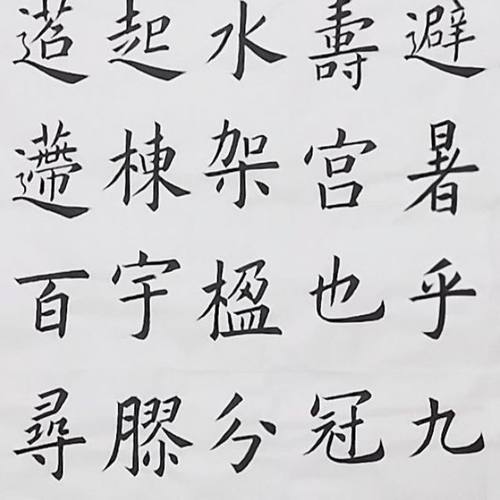 避暑乎九
壽宮也冠
水架楹分
起棟宇膠
迢遰百尋